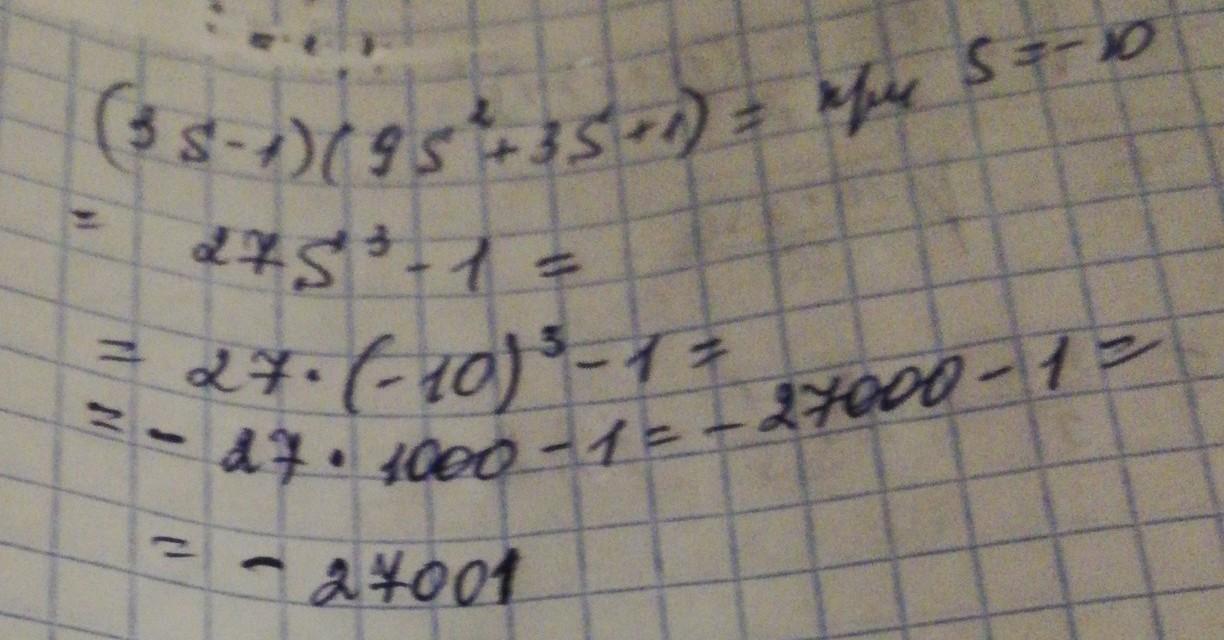 (3S-1)(9S²+3S+1)= при S=-10
= 27S³-1=
= 27·(-10)³-1=
=-27·1000-1=-27000-1=
=-27001